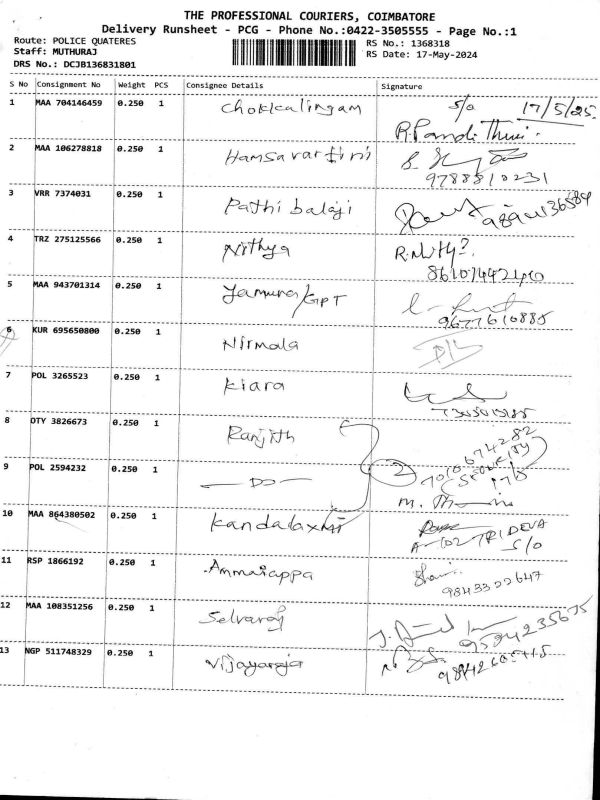 THE PROFESSIONAL COURIERS, COIMBATORE
Delivery Runsheet - PCG - Phone No.:0422-3505555 - Page No.:1
Route: POLICE QUATERES
Staff: MUTHURAJ
DRS No.: DCJB136831801
RS No.: 1368318
RS Date: 17-May-2024
S No Consignment No Weight PCS Consignee Details Signature
1 MAA 704146459 0.250 1 Chokkalingam S/o 17/5/25.
R.Pandi
2 MAA 106278818 0.250 1 Hamsavarthini
9788810231
3 VRR 7374031 0.250 1 Pathi balaji
4 TRZ 275125566 0.250 1 Nithya
5 MAA 943701314 0.250 1 Jamuna/GPT
9677610885
6 KUR 695650800 0.250 1 Nirmala
7 POL 3265523 0.250 1 Kiara
8 OTY 3826673 0.250 1 Ranjith
7010674282
(SECURITY)
9 POL 2594232 0.250 1 — DO — 2 17/5
10 MAA 864380502 0.250 1 Kandalaxmi
A-102 TRIDEVA
S/O
11 RSP 1866192 0.250 1 Ammaiappa
9843322647
12 MAA 108351256 0.250 1 Selvaraj
9594235675
13 NGP 511748329 0.250 1 Vijayaraja